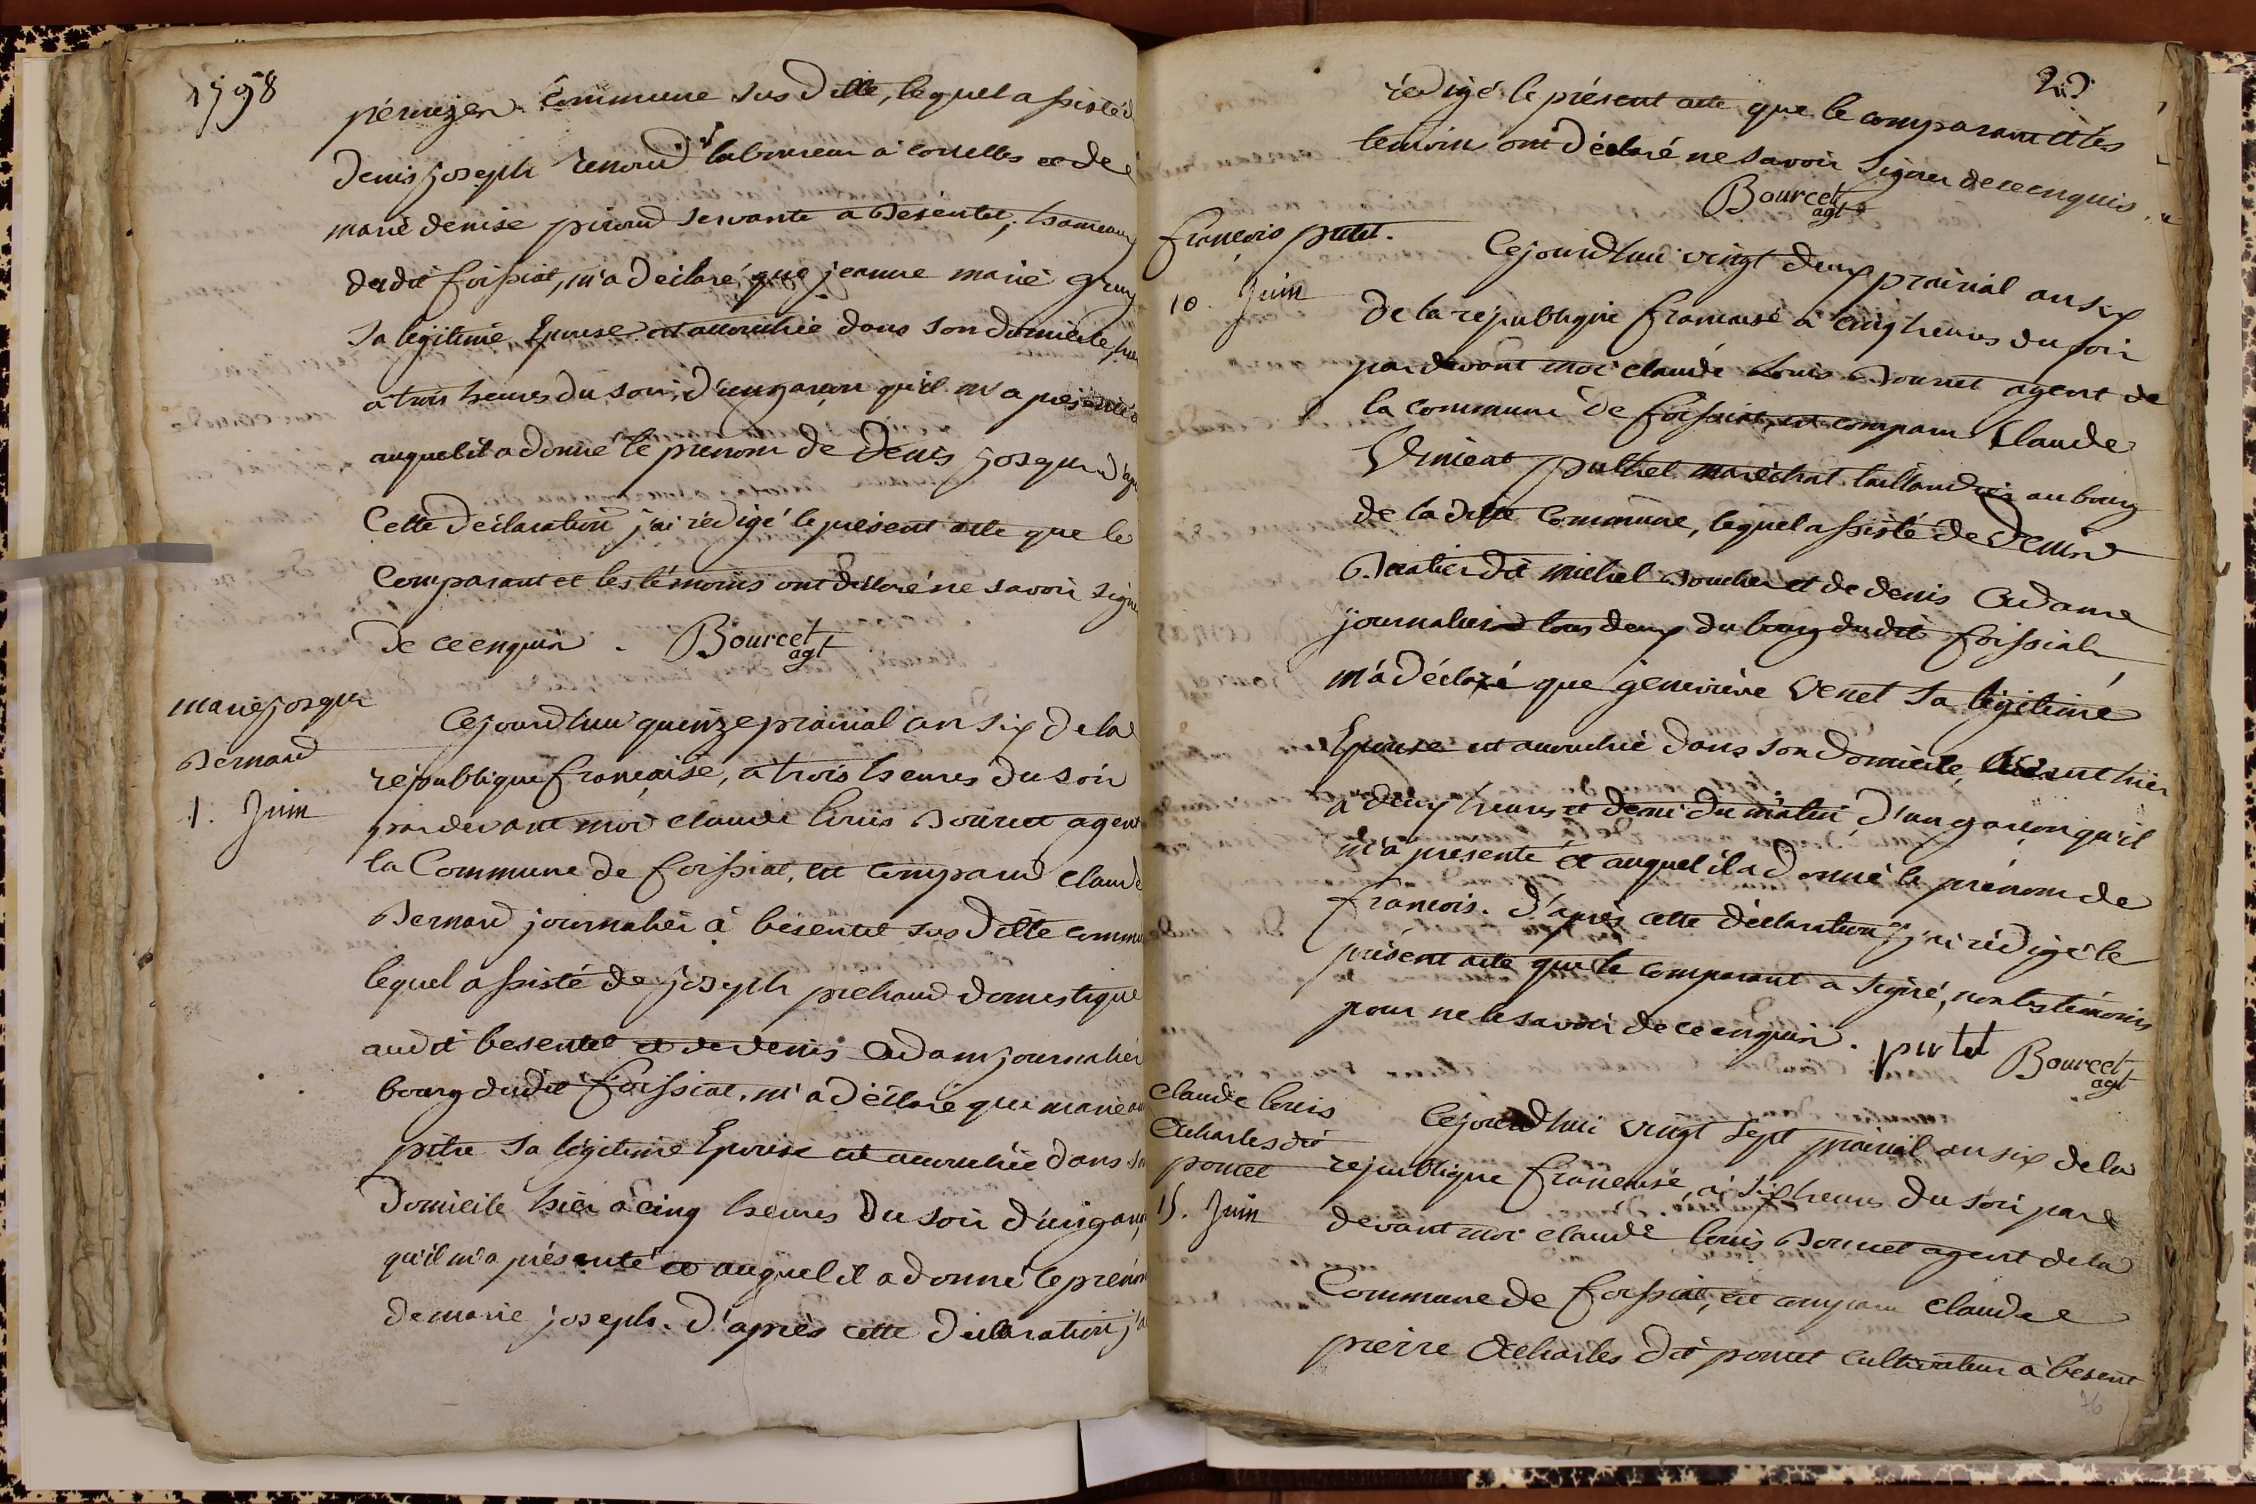 1798
péruizer commune sus ditte, lequel assisté d
denis joseph renoud laboureur à corcelles et de
marie denise piroud servante a Besentet, hameaux
dudit foissiat, m'a déclaré que jeanne marie
sa légitime Epouse est accouchée dans son domicile hier
a trois heures du soir, d'un garçon qu'il m'a présenté
auquel il a donné le prenom de denis joseph d'apr
Cette déclaration j'ai rédigé le présent acte que le
Comparant et les témoins ont déclaré ne savoir signe
de ce enquis. Bourcet
agt
marie joseph
Bernard
1. Juin
Cejourdhui quinze prairial an six de la
république française, à trois heures du soir
pardevant moi claude louis Bourcet agent
la Commune de foissiat, est comparu claude
Bernard journalier à besentet sus ditte commu
lequel assisté de joseph pichaud domestique
audit besentet et de denis adam journalier
bourg dudit foissiat, m'a déclaré que marie
pitre sa légitime Epouse est accouchée dans s
domicile hier à cinq heures du soir d'un garç
qu'il m'a présenté et auquel il a donné le prénom
de marie joseph. D'après cette déclaration j'ai
23
rédigé le présent acte que le comparant et les
temoins ont déclaré ne savoir signer de ce enquis.
Bourcet
agt
françois putet.
10. Juin
Cejourdhui vingt deux prairial an six
de la republique francaise à cinq heures du soir
pardevant moi claude louis Bourcet agent de
la commune de foissiat, est comparu Claude
Vincent puthet maréchal taillandier au bourg
de la ditte commune, lequel assisté de denis
dit michel et de denis Adam
journaliers tous deux du bourg dudit foissiat
m'a déclaré que genevieve Venet sa légitime
Epouse est accouchée dans son domicile, hier
a deux heures et demi du matin, d'un garçon qu'il
m'a présenté et auquel il a donné le prénom de
francois. D'après cette déclaration j'ai rédigé le
présent acte que le comparant a signé, non les témoins
pour ne le savoir de ce enquis. putet Bourcet
agt
Claude louis
Acharles dit
poncet
15. Juin
Cejourdhui vingt sept prairial an six de la
republique francaise, à six heures du soir par
devant moi claude louis Bourcet agent de la
Commune de foissiat, est comparu claude
pierre Acharles dit poncet cultivateur à besent
76